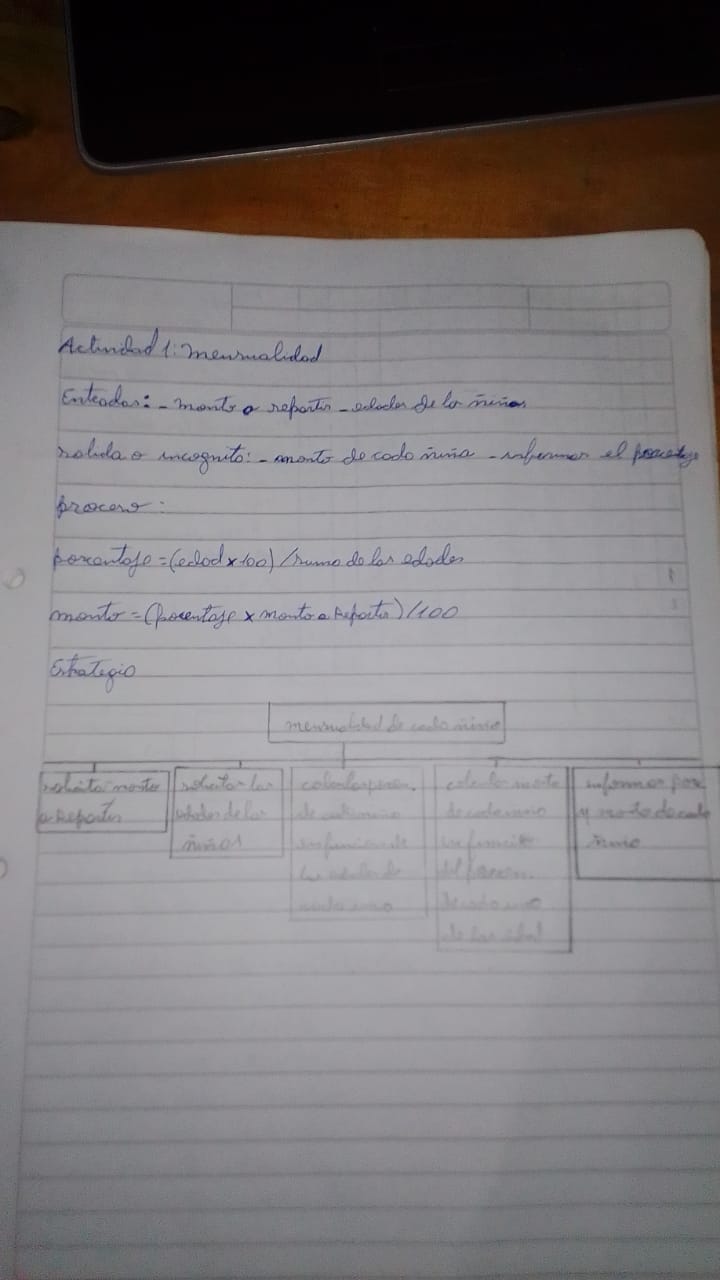 Actividad 1: mensualidad
Entradas: - monto a repartir - edades de la niñas
salida o incognito: - monto de cada niña - informar el porcentaje
proceso:
porcentaje = (edad x 100) / suma de las edades
monto = (porcentaje x monto a Repartir) / 100
Estrategia
mensualidad de cada niño
solicita monto
a Repartir
solicitar las
edades de los
niños
calcular porcen.
de cada niño
en funcion de
las edades de
cada uno
calcular monto
de cada niño
en función
del porcen.
de cada uno
de las
informar por
y monto de cada
niño